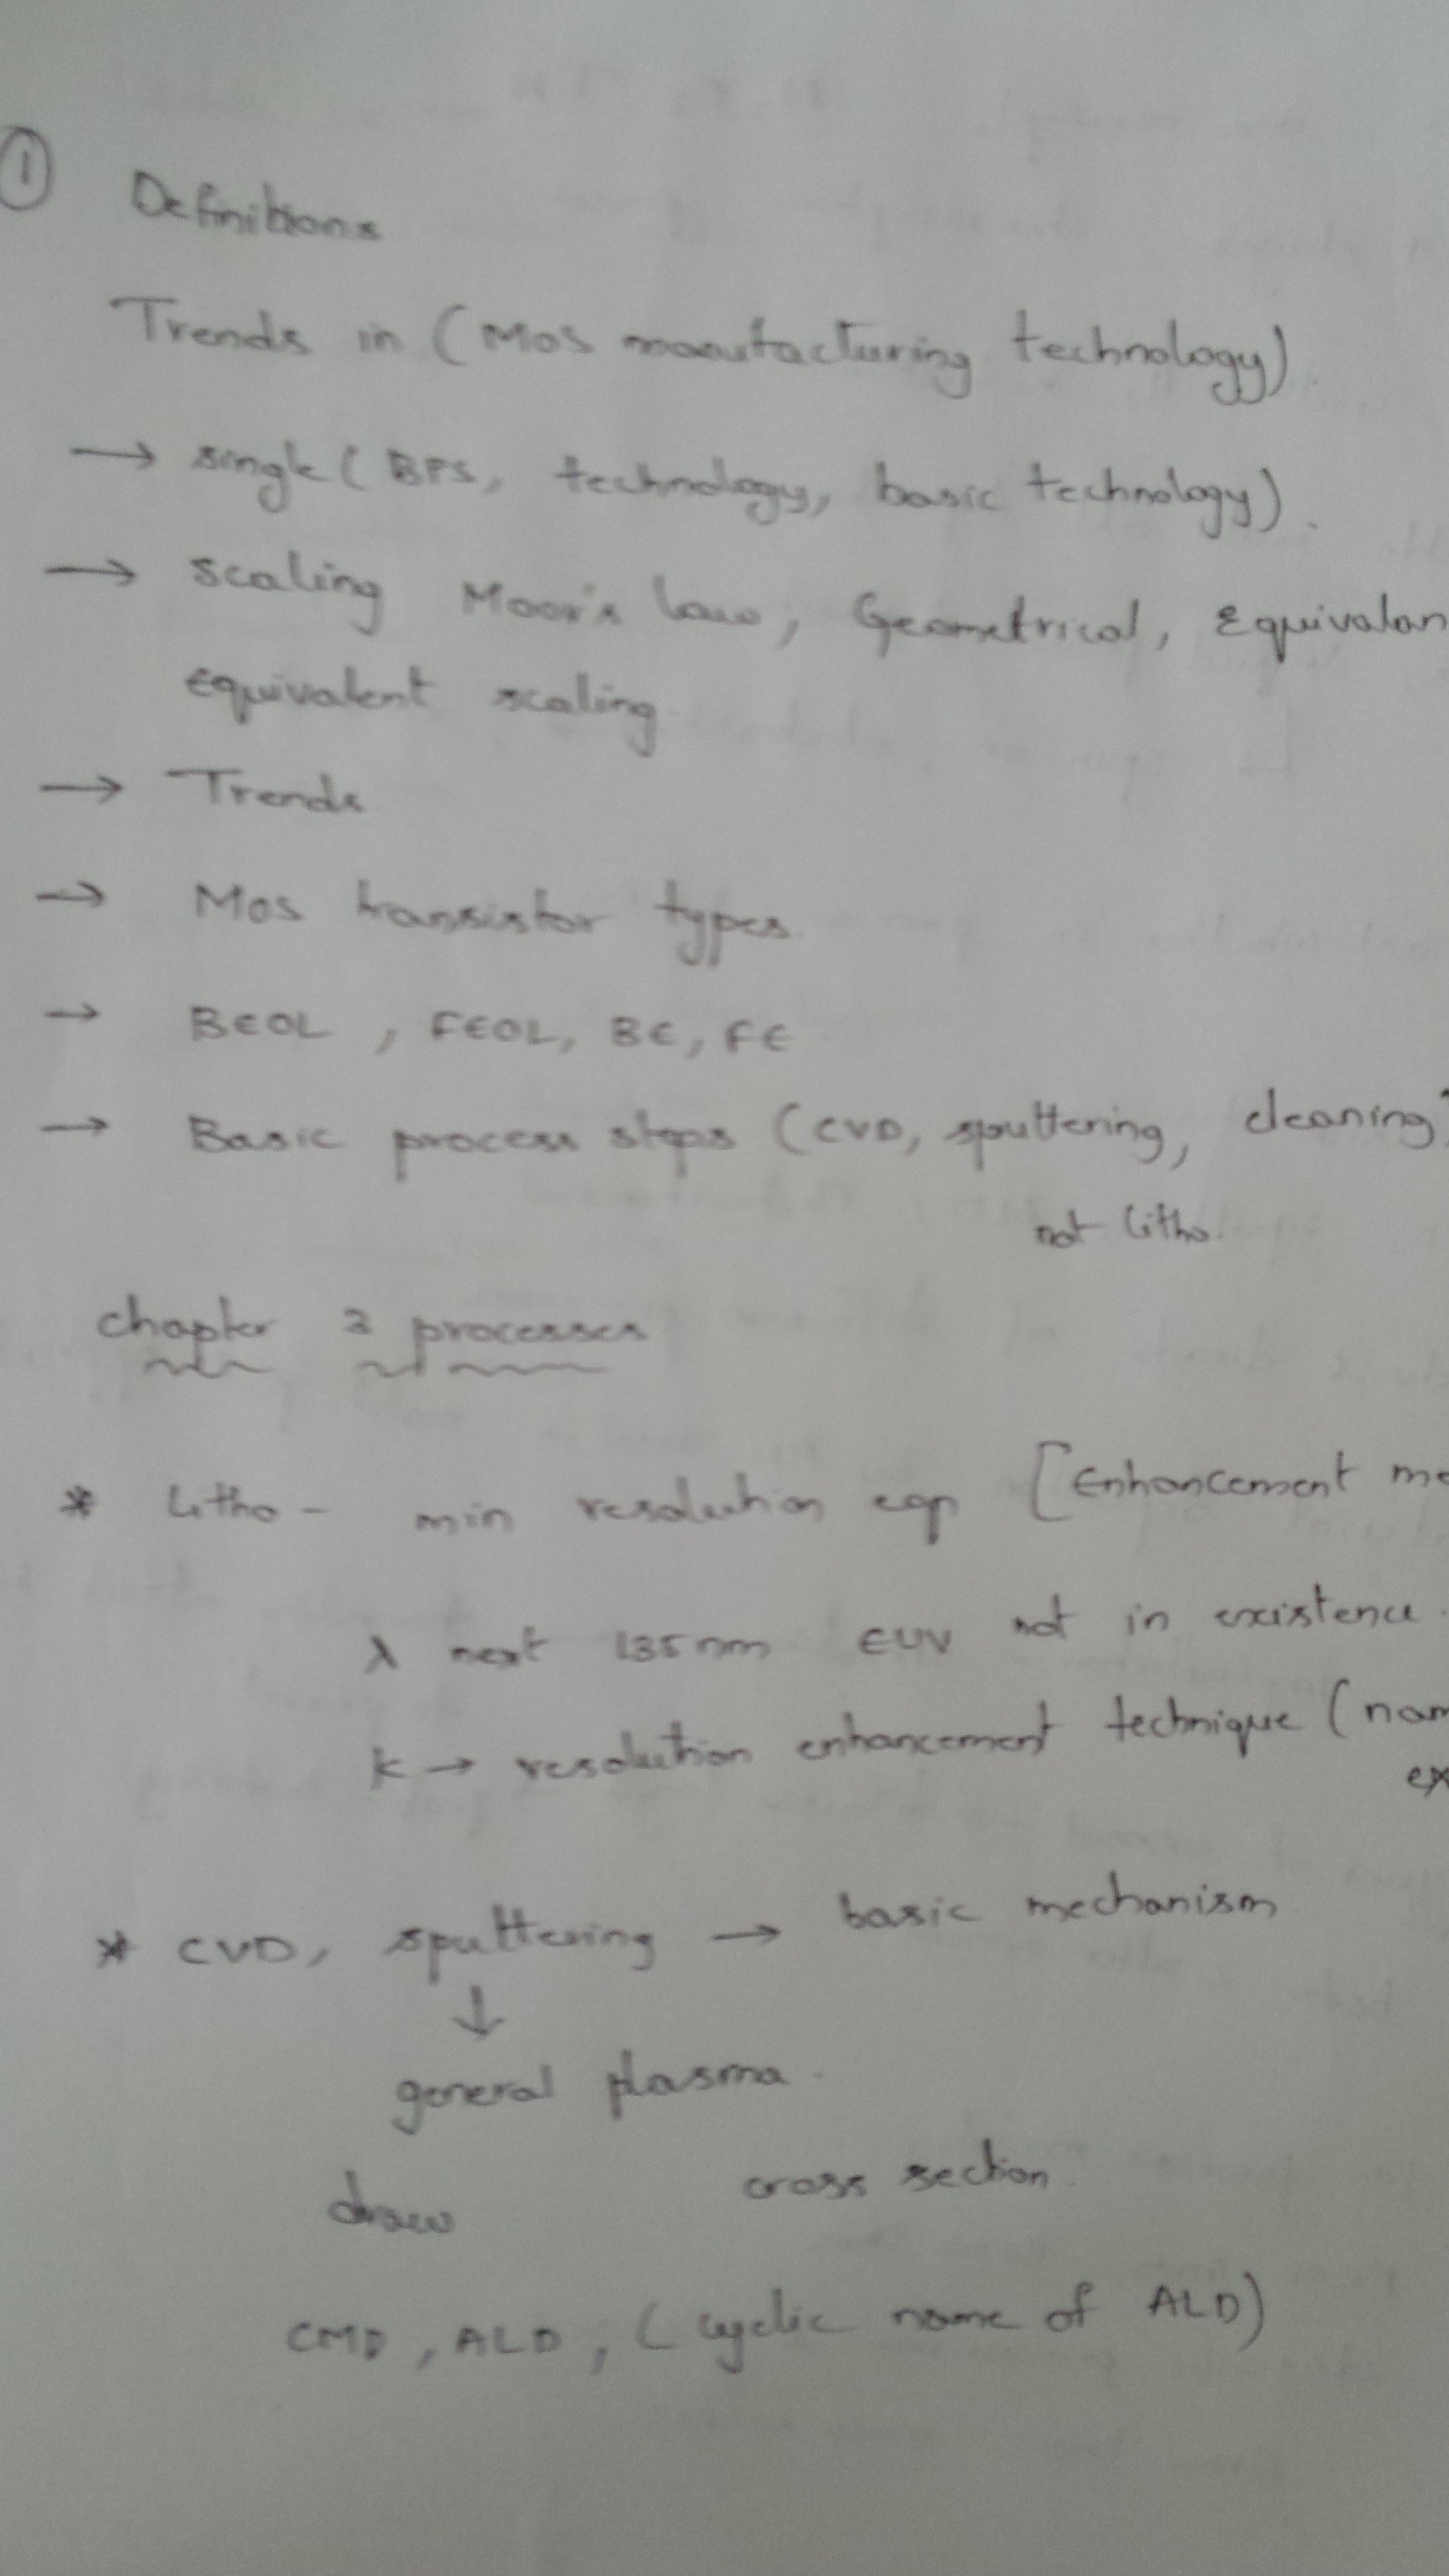 ①
Definitions
Trends in (Mos manufacturing technology)
→ single (BPS, technology, basic technology).
→ scaling Moor's law, Geometrical, Equivalan
equivalent scaling
→ Trends
→ Mos transistor types
→ BEOL, FEOL, BE, FE
→ Basic process steps (CVD, sputtering, cleaning)
not litho.
chapter processes
* Litho - min resolution eqp [Enhancement me
λ next 135nm EUV not in existence.
K → resolution enhancement technique (nam
ex
* CVD, sputtering → basic mechanism
↓
general plasma.
draw cross section.
CMP, ALD, (cyclic name of ALD)